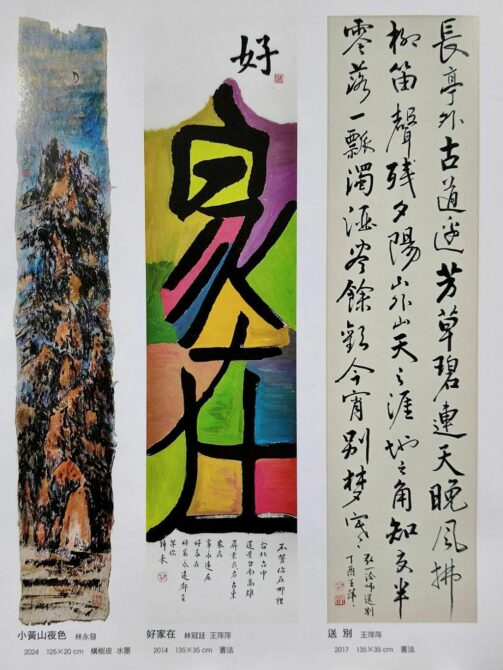 好
家在
不管你在哪裡
台北台中
還是台南高雄
屏東或者台東
家在
家永遠在
好家在
好家永遠都在
等你
歸來
長亭外古道邊芳草碧連天晚風拂
柳笛聲殘夕陽山外山天之涯地之角知交半
零落一瓢濁酒盡餘歡今宵別夢寒
弘一法師送別
丁酉王萍萍
小黃山夜色 林永發
2024 125×20 cm 構樹皮 水墨
好家在 林冠廷 王萍萍
2014 135×35 cm 書法
送 別 王萍萍
2017 135×35 cm 書法